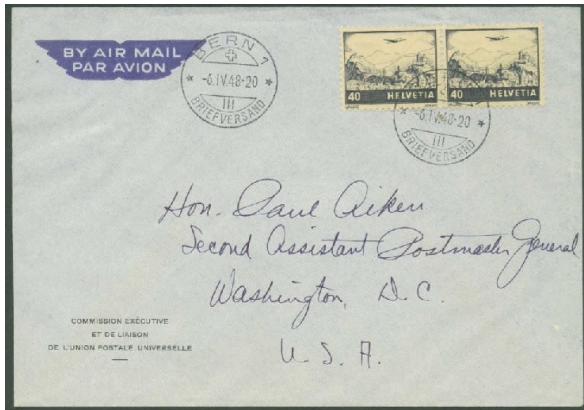 BY AIR MAIL
PAR AVION
BERN 1
-6.IV.48-20
III
BRIEFVERSAND
40 HELVETIA
40 HELVETIA
-6.IV.48-20
III
BRIEFVERSAND
Hon. Paul Aiken
Second Assistant Postmaster General
Washington, D.C.
U.S.A.
COMMISSION EXÉCUTIVE
ET DE LIAISON
DE L'UNION POSTALE UNIVERSELLE